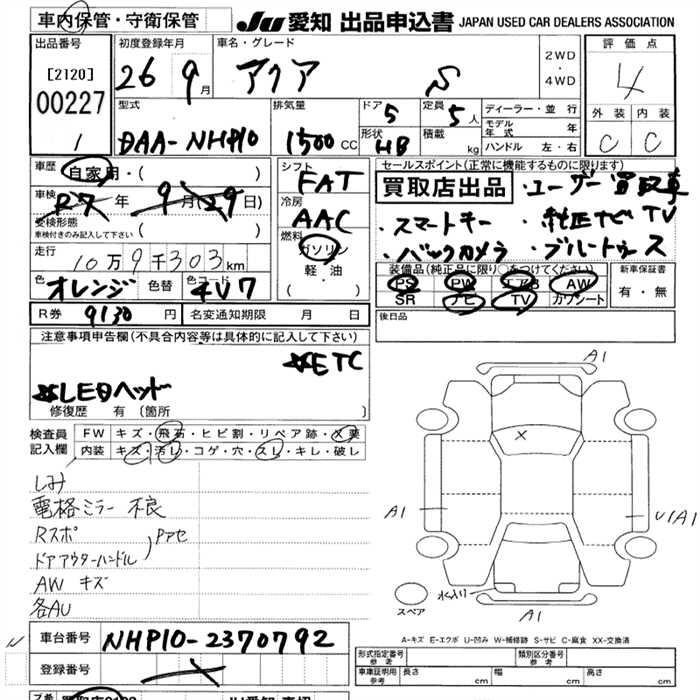 車内保管・守衛保管
JU 愛知 出品申込書 JAPAN USED CAR DEALERS ASSOCIATION
出品番号 初度登録年月 車名・グレード 評価点
[2120] 26 9月 アクア S 2WD・4WD 4
00227
1
型式 排気量 ドア 定員 ディーラー・並行 外装 内装
DAA-NHP10 1500CC 5 5人 モデル年式 年 C C
形状 HB 積載 kg ハンドル 左・右
車歴 自家用・( ) シフト FAT セールスポイント(正常に機能するものに限ります)
車検 R7年 9月29日) 冷房 AAC 買取店出品 ・ユーザー買取車
受検形態 ・スマートキー ・純正ナビTV
車検付きのみ記入して下さい ( ) 燃料 ガソリン ・バックカメラ ・ブルートゥース
走行 10万9千303km 軽・油 装備品(純正品に限り○をつけてください) 新車保証書
色 オレンジ 色替 色コード 4V7 ・( ) PS PW エアB AW 有・無
SR ナビ TV カワシート
R券 9130円 名変通知期限 月 日 後日品
注意事項申告欄(不具合内容等は具体的に記入して下さい)
※ETC
※LEDヘッド
修復歴 有 〔箇所 〕
検査員 FW キズ・飛石・ヒビ割・リペア跡・X要
記入欄 内装 キズ・汚レ・コゲ・穴・スレ・キレ・破レ
しみ
電格ミラー 不良
Rスポ
ドアアウターハンドル )Pアセ
AW キズ
各AU
A1
X
A1
U1A1
水入り
スペア
A1
A-キズ E-エクボ U-凹み W-補修跡 S-サビ C-腐食 XX-交換済
車台番号 NHP10-2370792
登録番号
形式指定番号 参考 類別区分番号 参考
車庫証明用 参考 長さ cm 幅 cm 高さ cm